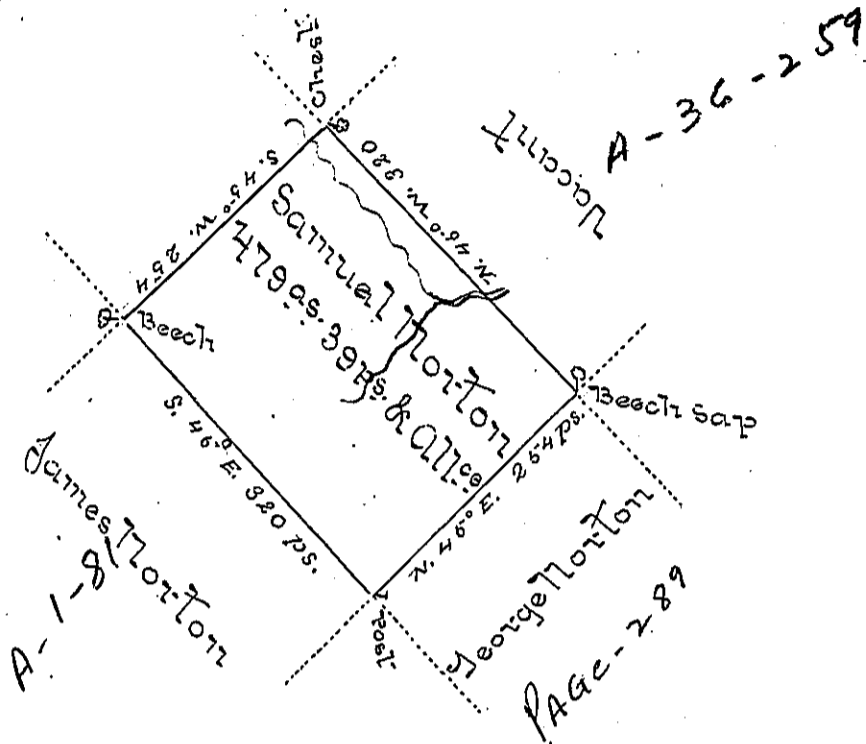 A-36-259
Vacant
Chest.
S. 45° W. 254
N. 45° W. 320
Samuel Norton
479 as. 39 ps. & Allce
Beech
Beech Sap
S. 45° E. 320 ps.
N. 45° E. 254 ps.
James Norton
A-1-81
Post
George Norton
PAGE-289